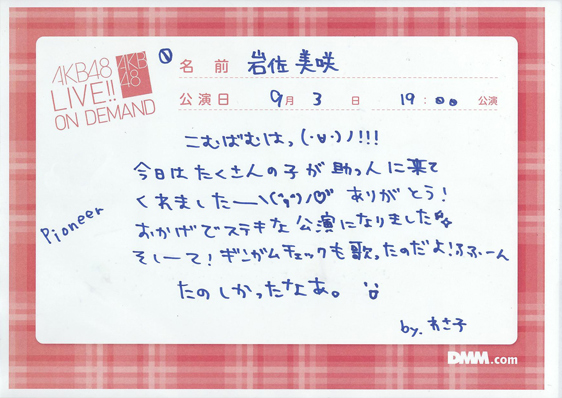 AKB48
LIVE!!
ON DEMAND
AKB
48
名前 岩佐美咲
公演日 9月3日 19:00 公演
こむばむはっ(・∪・)ノ!!!
今日はたくさんの子が助っ人に来て
くれましたー＼(^o^)ノ♡ ありがとう!
Pioneer
おかげでステキな公演になりました
そしーて!ギンガムチェックも歌ったのだよ!ふふーん
たのしかったなあ。
by. わさ子
DMM.com